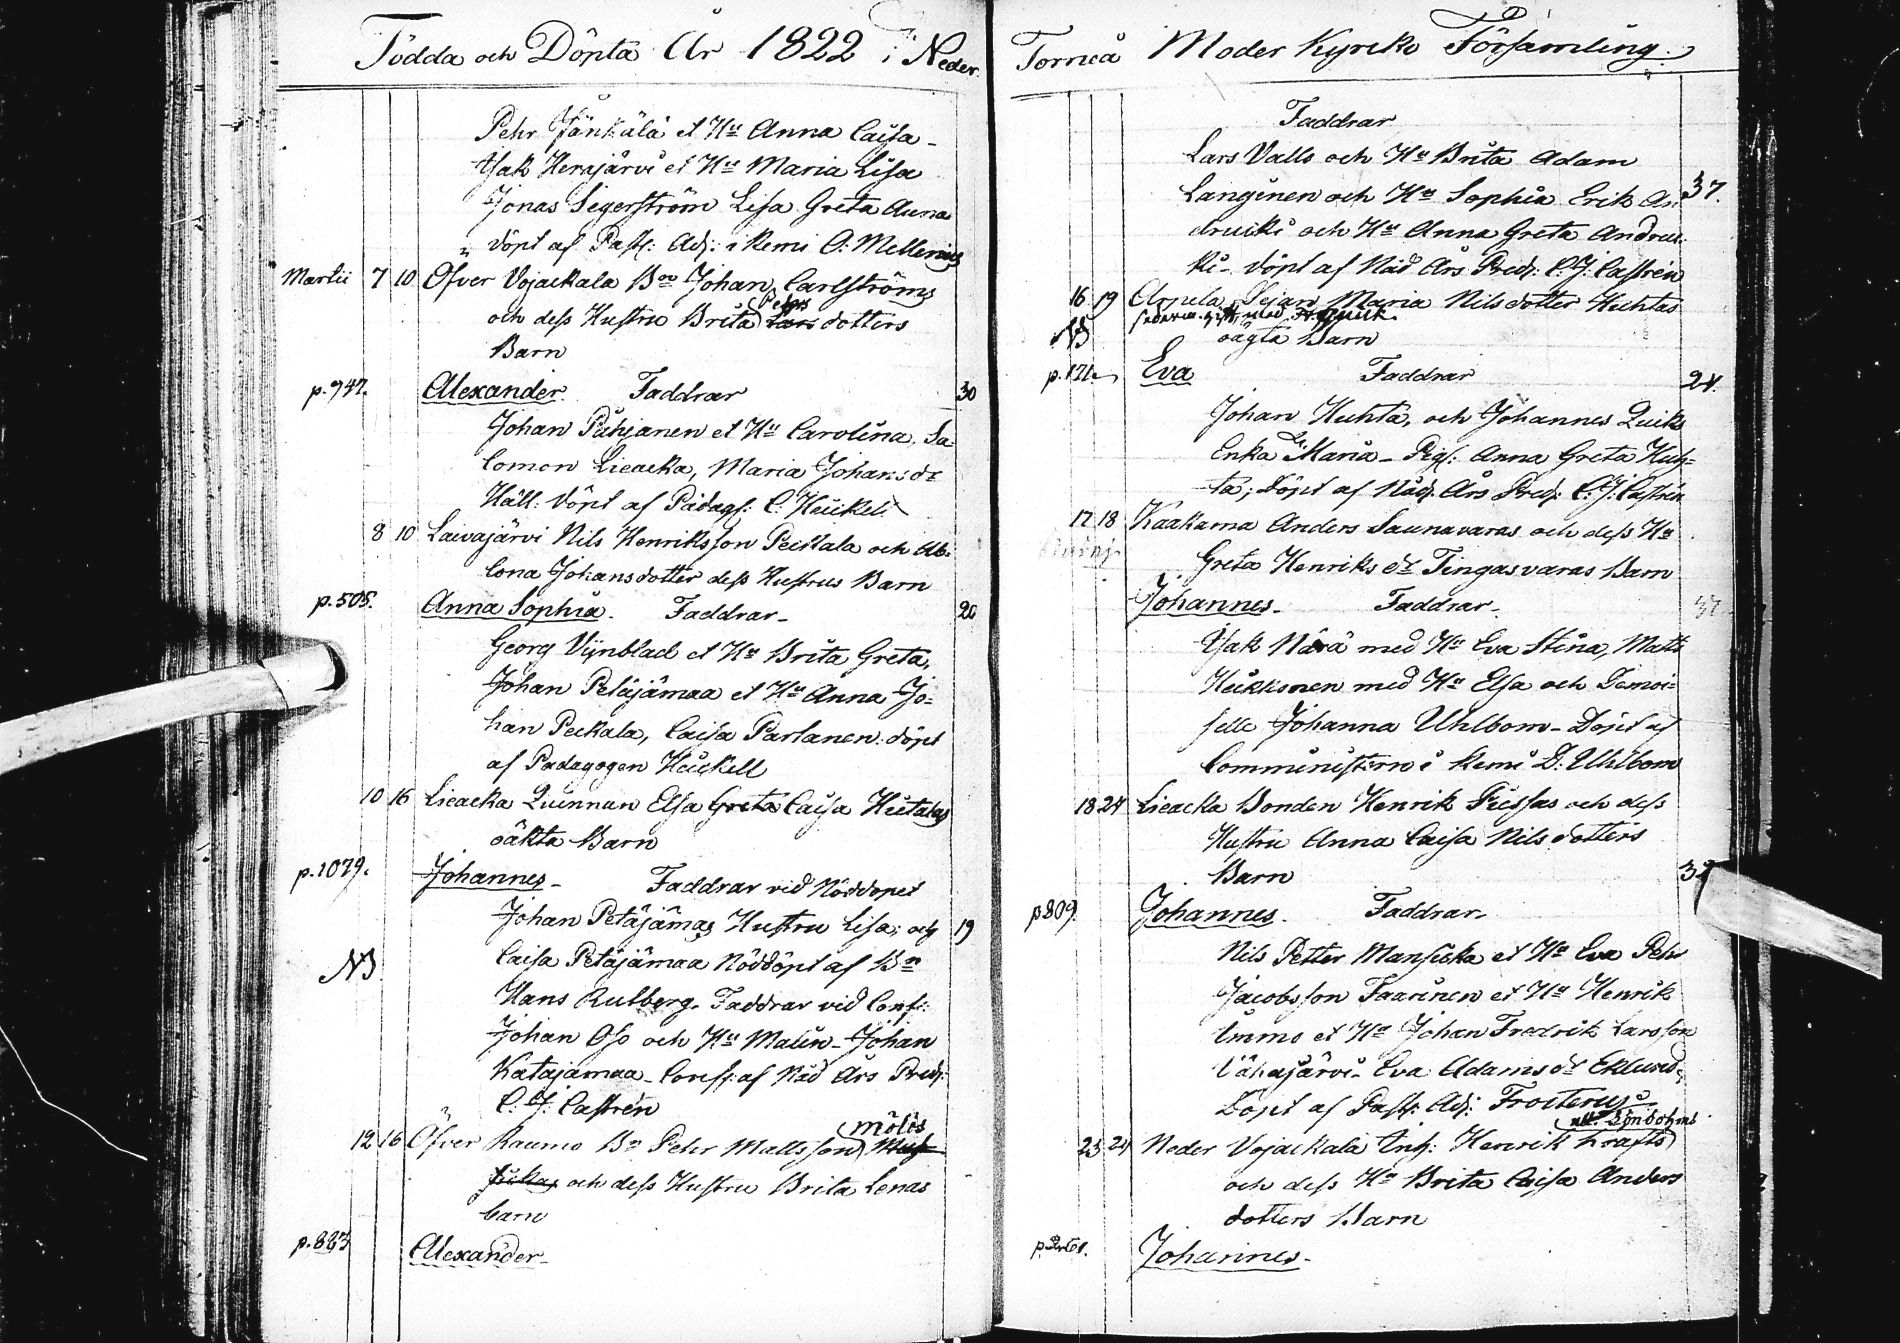 Födda och Döpta År 1822 i Neder
Pehr Jänkälä et Hu Anna Caisa
Isak Herajärvi et Hu Maria Lisa
Jonas Segerström Lisa Greta Anna
döpt af Past: Adj: i Kemi O: Mellenius
Martii 7 10 Öfver Vojackala Bon Johan Carlströms
och dess Hustru Brita Lars dotters
Barn
p. 947. Alexander Faddrar 30
Johan Puhjanen et Hu Carolina Sa-
lomon Lieacka, Maria Johansdr
Häll: döpt af Pädag: C. Heickel
8 10 Laivajärvi Nils Henriksson Peckala och Ab-
lona Johansdotter dess Hustrus Barn
p. 505. Anna Sophia Faddrar 20
Georg Vijnblad et Hu Brita Greta,
Johan Petäjämaa et Hu Anna Jo-
han Peckala, Caisa Parlanen. döpt
af Padagogen Heickell
10 16 Lieacka Quinnan Elsa Greta Caisa Hietalas
oäkta Barn
p. 1079. Johannes Faddrar vid Nöddopet
Johan Petäjämas Hustru Lisa; och 19
NB Caisa Petäjämaa Nöddöpt af Bn
Hans Rutberg. Faddrar vid Conf:
Johan Ojo och Hu Malin Johan
Katajamaa Conf: af Näd Års Pred:
C. J. Castrén
mölös
12 16 Öfver Raumo Bn Pehr Mattsson
och dess Hustru Brita Lenas
barn
p. 883 Alexander
Torneå Moder Kyrko Församling
Faddrar
Lars Valls och Hu Brita Adam
Langinen och Hu Sophia Erik An 37.
druiki och Hu Anna Greta Andrui-
ki döpt af Näd Års Pred: C. J. Castrén
16 19 Arpela Pejan Maria Nils dotter Huhtas
NB oägta Barn
Eva Faddrar 24.
Johan Huhta, och Johannes Quicks
Enka Maria Pig: Anna Greta Huh-
ta; Döpt af Näd: Års Pred: C. J. Castrén
17 18 Kaakama Anders Saunavaras och dess Hu
Greta Henriks dr Tingasvaras Barn
Johannes Faddrar 37
Isak Närä med Hu Eva Stina, Matts
Heikkonen med Hu Elsa och Demoi-
selle Johanna Uhlbom Döpt af
Comministern i Kemi D: Uhlbom
18 24 Lieacka Bonden Henrik Piessas och dess
Hustru Anna Caisa Nils dotters
Barn
p 809 Johannes Faddrar
Nils Petter Mansicka et Hu Eva Pehr
Jacobsson Taarinen et Hu Henrik
Immo et Hu Johan Fredrik Larsson
Vähäjärvi Eva Adams dr Eklund
Döpt af Past: Adj: Frosterus
23 24 Neder Vojackala Inh: Henrik Krafts
och dess Hu Brita Caisa Anders
dotters Barn
Johannes